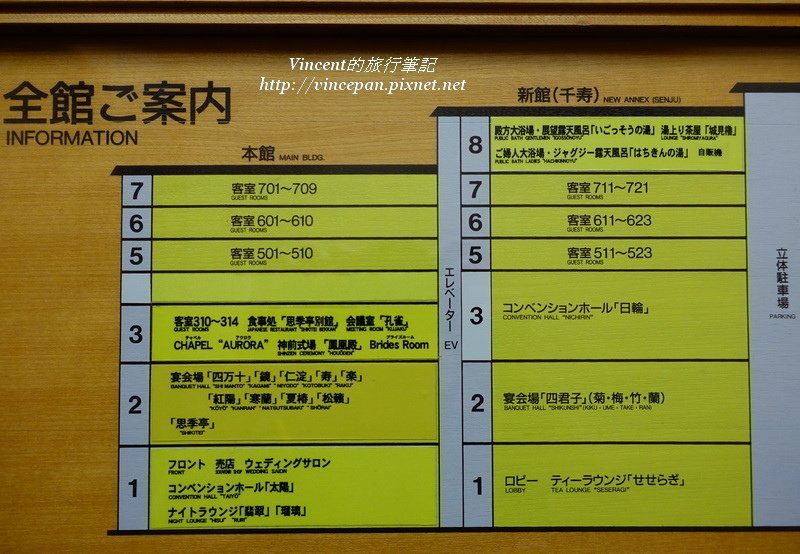 Vincent的旅行筆記
http://vincepan.pixnet.net
全館ご案内
INFORMATION
本館 MAIN BLDG.
7 客室 701～709
GUEST ROOMS
6 客室 601～610
GUEST ROOMS
5 客室 501～510
GUEST ROOMS
3 客室310～314 食事処「思季亭別館」 会議室「孔雀」
GUEST ROOMS JAPANESE RESTAURANT "SHIKITEI BEKKAN" MEETING ROOM "KUJAKU"
チャペル アウロラ ブライズルーム
CHAPEL "AURORA" 神前式場「鳳凰殿」 Brides Room
SHINZEN CEREMONY "HOUODEN"
2 宴会場「四万十」「鏡」「仁淀」「寿」「楽」
BANQUET HALL "SHIMANTO" "KAGAMI" "NIYODO" "KOTOBUKI" "RAKU"
「紅陽」「寒蘭」「夏椿」「松籟」
"KŌYŌ" "KANRAN" "NATSUTSUBAKI" "SHŌRAI"
「思季亭」
"SHIKITEI"
1 フロント 売店 ウェディングサロン
FRONT SOUVENIR SHOP WEDDING SALON
コンベンションホール「太陽」
CONVENTION HALL "TAIYŌ"
ナイトラウンジ「翡翠」「瑠璃」
NIGHT LOUNGE "HISUI" "RURI"
エレベーター EV
新館(千寿) NEW ANNEX (SENJU)
8 殿方大浴場・展望露天風呂「いごっそうの湯」 湯上り茶屋「城見櫓」
PUBLIC BATH GENTLEMEN "IGOSSŌNOYU" LOUNGE "SHIROMIYAGURA"
ご婦人大浴場・ジャグジー露天風呂「はちきんの湯」 自販機
PUBLIC BATH LADIES "HACHIKINNOYU"
7 客室 711～721
GUEST ROOMS
6 客室 611～623
GUEST ROOMS
5 客室 511～523
GUEST ROOMS
3 コンベンションホール「日輪」
CONVENTION HALL "NICHIRIN"
2 宴会場「四君子」(菊・梅・竹・蘭)
BANQUET HALL "SHIKUNSHI" (KIKU・UME・TAKE・RAN)
1 ロビー ティーラウンジ「せせらぎ」
LOBBY TEA LOUNGE "SESERAGI"
立体駐車場
PARKING